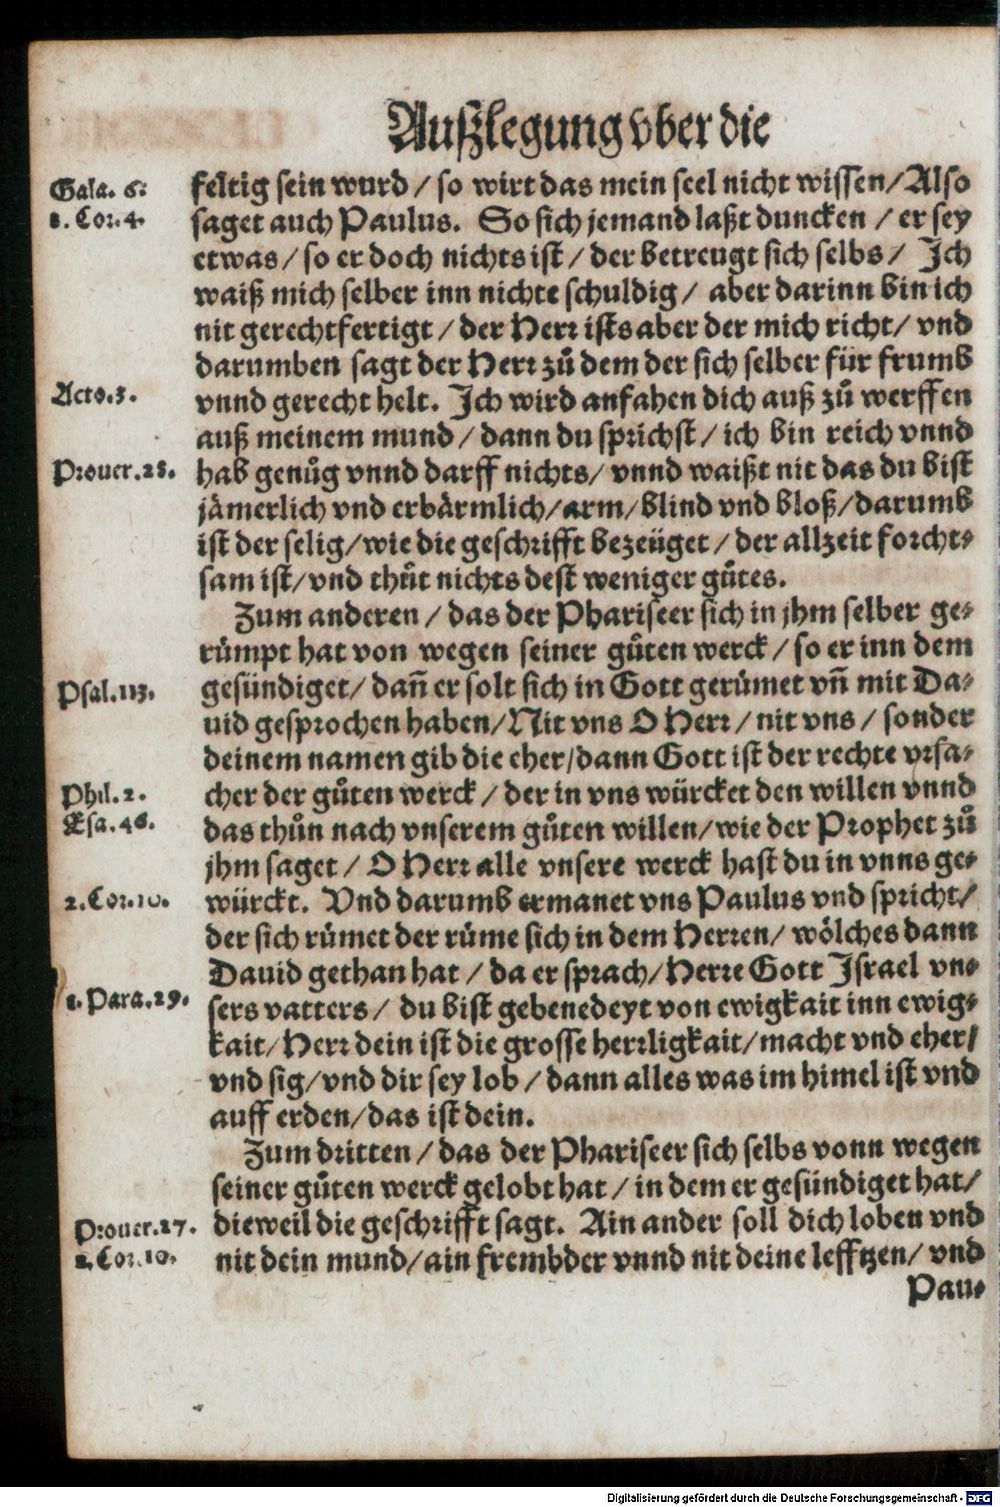 Außlegung vber die
Gala. 6.
1. Cor. 4.
feltig sein wurd / so wirt das mein seel nicht wissen / Also
saget auch Paulus. So sich jemand laßt duncken / er sey
etwas / so er doch nichts ist / der betreugt sich selbs / Ich
waiß mich selber inn nichte schuldig / aber darinn bin ich
nit gerechtfertigt / der Herr ists aber der mich richt / vnd
darumben sagt der Herr zů dem der sich selber für frumb
Acto. 3.
vnnd gerecht helt. Ich wird anfahen dich auß zů werffen
auß meinem mund / dann du sprichst / ich bin reich vnnd
Prouer. 28.
hab genůg vnnd darff nichts / vnnd waißt nit das du bist
jämerlich vnd erbärmlich / arm / blind vnd bloß / darumb
ist der selig / wie die geschrifft bezeüget / der allzeit forcht-
sam ist / vnd thůt nichts dest weniger gůtes.
Zum anderen / das der Phariseer sich in jhm selber ge-
růmpt hat von wegen seiner gůten werck / so er inn dem
Psal. 113.
gesündiget / dañ er solt sich in Gott gerůmet vñ mit Da-
uid gesprochen haben / Nit vns O Herr / nit vns / sonder
deinem namen gib die eher / dann Gott ist der rechte vrsa-
Phil. 2.
cher der gůten werck / der in vns würcket den willen vnnd
Esa. 46.
das thůn nach vnserem gůten willen / wie der Prophet zů
jhm saget / O Herr alle vnsere werck hast du in vnns ge-
2. Cor. 10.
würckt. Vnd darumb ermanet vns Paulus vnd spricht /
der sich růmet der růme sich in dem Herren / wölches dann
Dauid gethan hat / da er sprach / Herre Gott Israel vn-
1. Para. 29.
sers vatters / du bist gebenedeyt von ewigkait inn ewig-
kait / Herr dein ist die grosse herrligkait / macht vnd eher /
vnd sig / vnd dir sey lob / dann alles was im himel ist vnd
auff erden / das ist dein.
Zum dritten / das der Phariseer sich selbs vonn wegen
seiner gůten werck gelobt hat / in dem er gesündiget hat /
Prouer. 27.
dieweil die geschrifft sagt. Ain ander soll dich loben vnd
2. Cor. 10.
nit dein mund / ain frembder vnnd nit deine lefftzen / vnd
Pau-
Digitalisierung gefördert durch die Deutsche Forschungsgemeinschaft - DFG